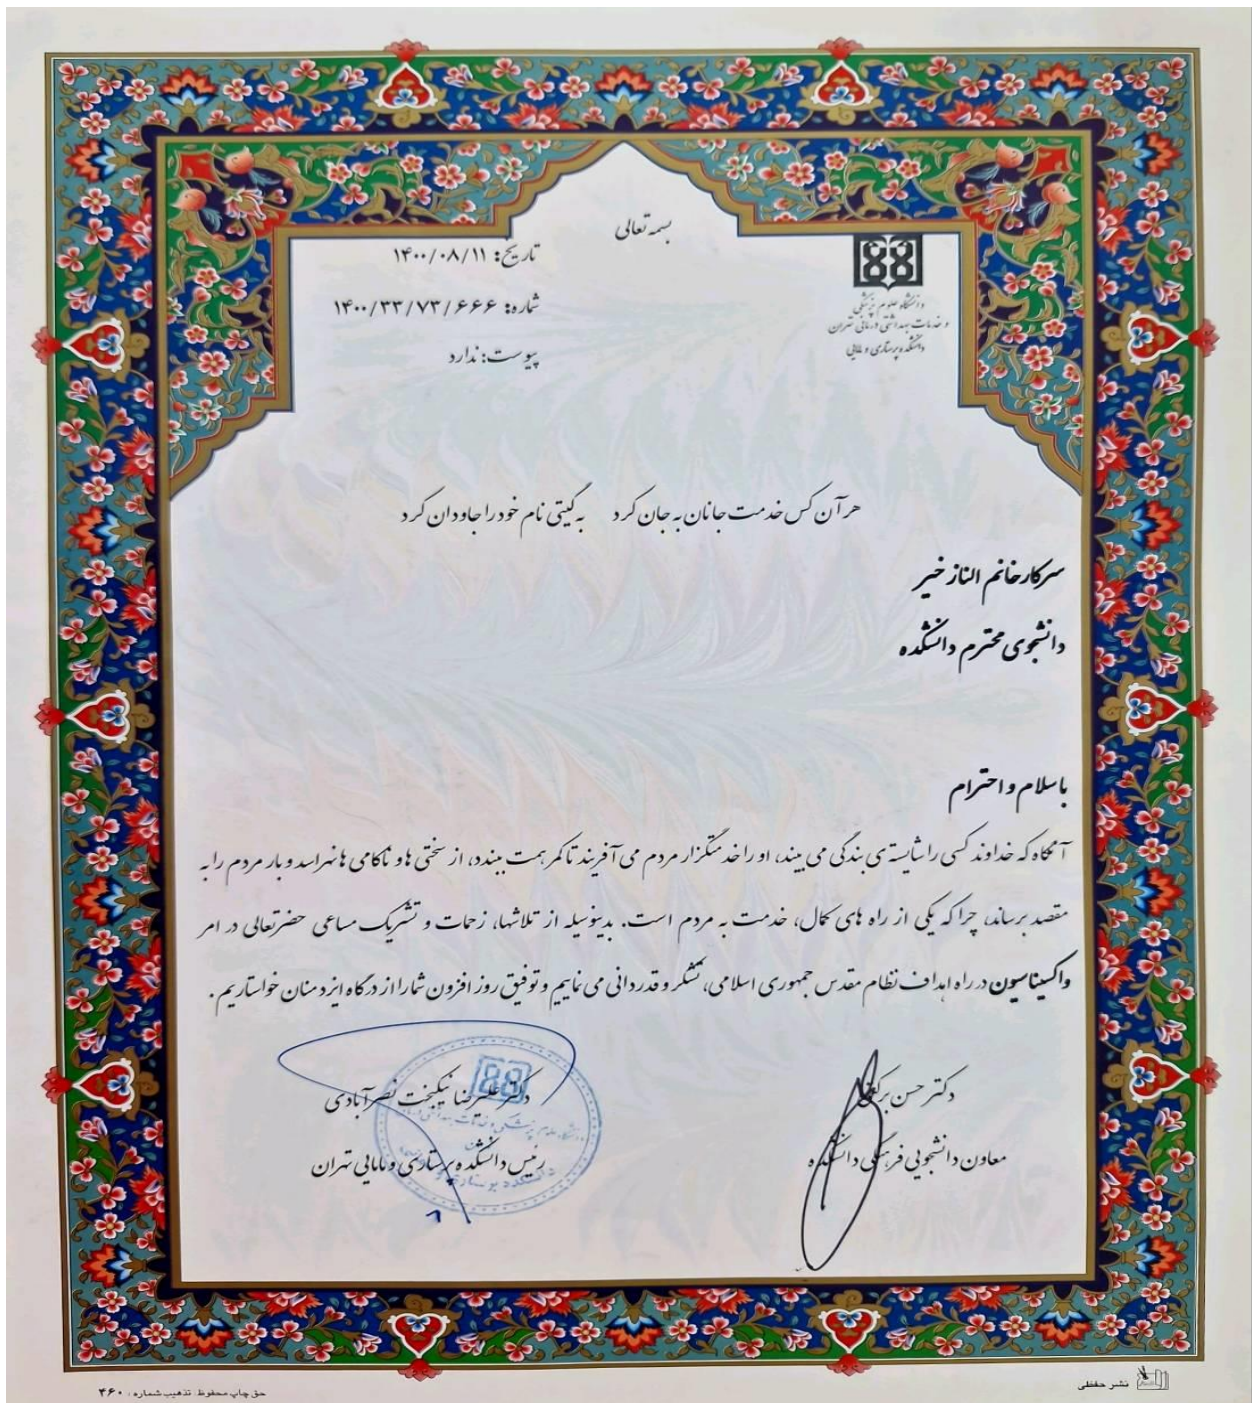 بسمه تعالی
دانشگاه علوم پزشکی
و خدمات بهداشتی درمانی تهران
دانشکده پرستاری و مامایی
تاریخ: ۱۴۰۰/۰۸/۱۱
شماره: ۱۴۰۰/۳۳/۷۳/۶۶۶
پیوست: ندارد
هر آن کس خدمت جانان به جان کرد به گیتی نام خود را جاودان کرد
سرکار خانم الناز خیر
دانشجوی محترم دانشکده
با سلام و احترام
آنگاه که خداوند کسی را شایسته ی بندگی می بیند، او را خدمتگزار مردم می آفریند تا کمر همت ببندد، از سختی ها و ناکامی ها نهراسد و بار مردم را به
مقصد برساند، چرا که یکی از راه های کمال، خدمت به مردم است. بدینوسیله از تلاشها، زحمات و تشریک مساعی حضرتعالی در امر
واکسیناسیون در راه اهداف نظام مقدس جمهوری اسلامی، تشکر و قدردانی می نماییم و توفیق روز افزون شما را از درگاه ایزد منان خواستاریم.
دکتر حسن
معاون دانشجویی فرهنگی دانشکده
دکتر علیرضا نیکبخت نصرآبادی
رئیس دانشکده پرستاری و مامایی تهران
نشر حفظی
حق چاپ محفوظ: تذهیب شماره: ۴۶۰